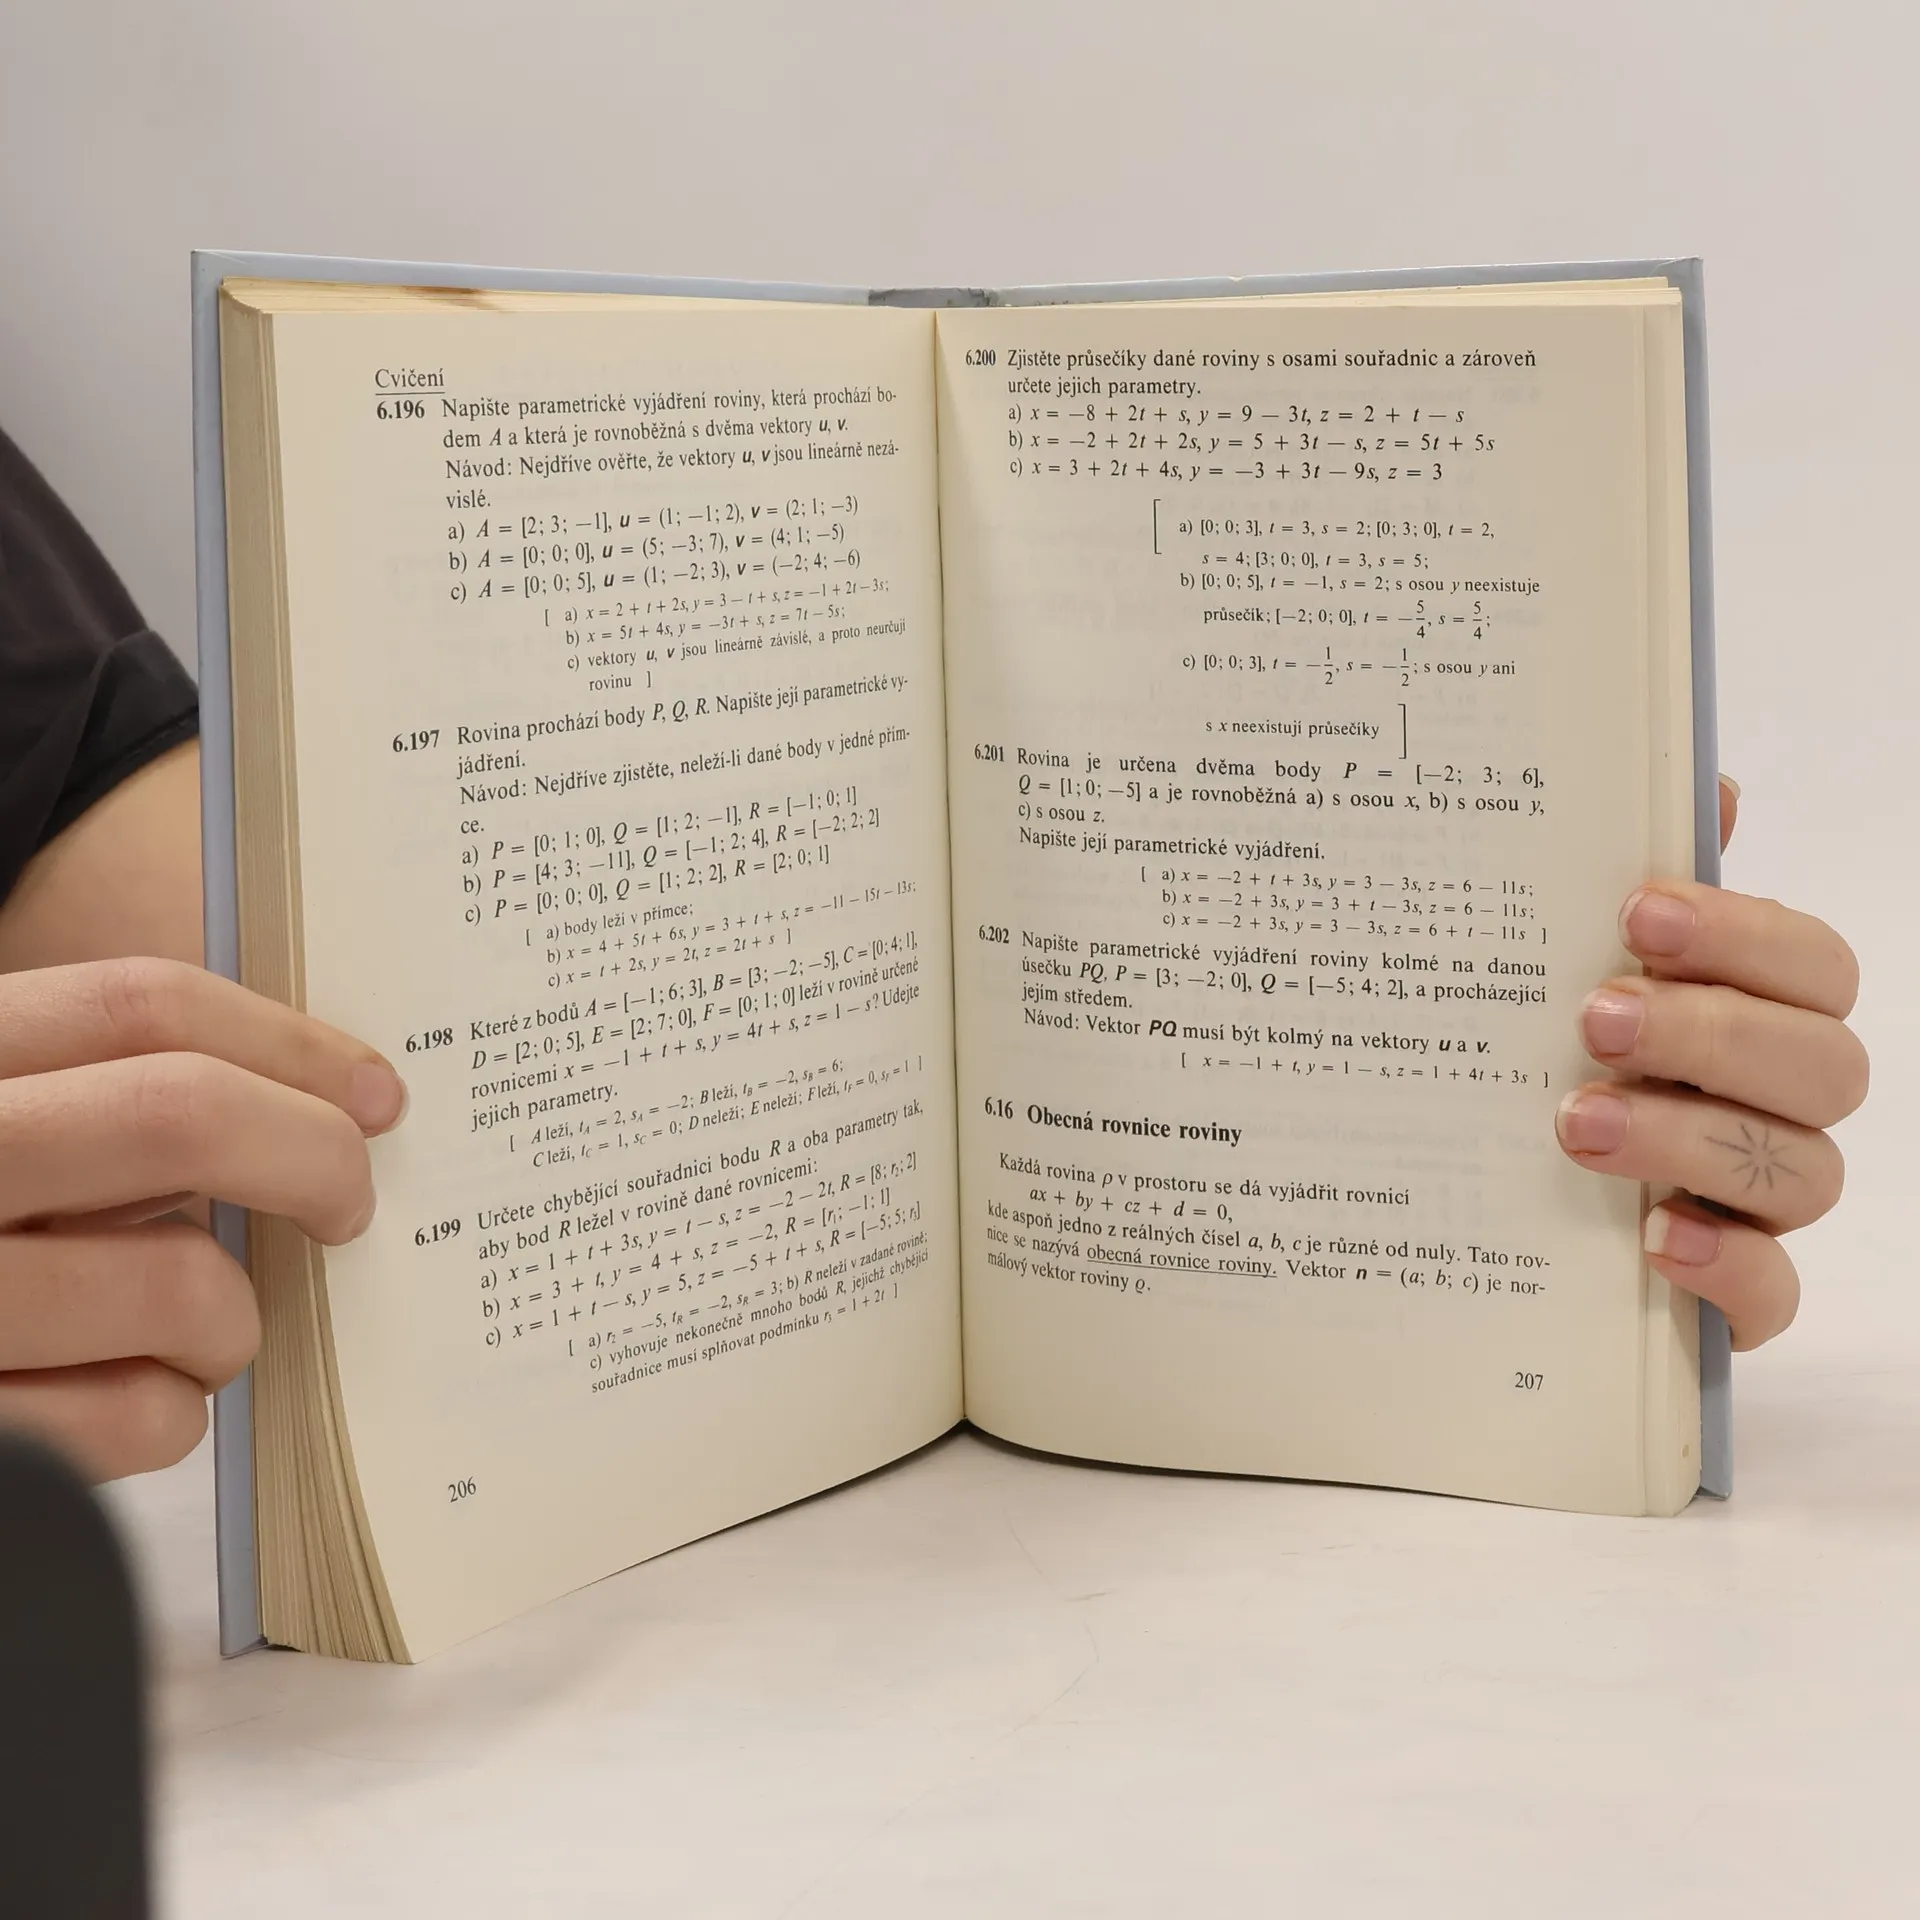 Cvičení
6.196 Napište parametrické vyjádření roviny, která prochází bo-
dem A a která je rovnoběžná s dvěma vektory u, v.
Návod: Nejdříve ověřte, že vektory u, v jsou lineárně nezá-
vislé.
a) A = [2; 3; −1], u = (1; −1; 2), v = (2; 1; −3)
b) A = [0; 0; 0], u = (5; −3; 7), v = (4; 1; −5)
c) A = [0; 0; 5], u = (1; −2; 3), v = (−2; 4; −6)
[ a) x = 2 + t + 2s, y = 3 − t + s, z = −1 + 2t − 3s;
b) x = 5t + 4s, y = −3t + s, z = 7t − 5s;
c) vektory u, v jsou lineárně závislé, a proto neurčují
rovinu ]
6.197 Rovina prochází body P, Q, R. Napište její parametrické vy-
jádření.
Návod: Nejdříve zjistěte, neleží-li dané body v jedné přím-
ce.
a) P = [0; 1; 0], Q = [1; 2; −1], R = [−1; 0; 1]
b) P = [4; 3; −11], Q = [−1; 2; 4], R = [−2; 2; 2]
c) P = [0; 0; 0], Q = [1; 2; 2], R = [2; 0; 1]
[ a) body leží v přímce;
b) x = 4 + 5t + 6s, y = 3 + t + s, z = −11 − 15t − 13s;
c) x = t + 2s, y = 2t, z = 2t + s ]
6.198 Které z bodů A = [−1; 6; 3], B = [3; −2; −5], C = [0; 4; 1],
D = [2; 0; 5], E = [2; 7; 0], F = [0; 1; 0] leží v rovině určené
rovnicemi x = −1 + t + s, y = 4t + s, z = 1 − s? Udejte
jejich parametry.
[ A leží, t_A = 2, s_A = −2; B leží, t_B = −2, s_B = 6;
C leží, t_C = 1, s_C = 0; D neleží; E neleží; F leží, t_F = 0, s_F = 1 ]
6.199 Určete chybějící souřadnici bodu R a oba parametry tak,
aby bod R ležel v rovině dané rovnicemi:
a) x = 1 + t + 3s, y = t − s, z = −2 − 2t, R = [8; r₂; 2]
b) x = 3 + t, y = 4 + s, z = −2, R = [r₁; −1; 1]
c) x = 1 + t − s, y = 5, z = −5 + t + s, R = [−5; 5; r₃]
[ a) r₂ = −5, t_R = −2, s_R = 3; b) R neleží v zadané rovině;
c) vyhovuje nekonečně mnoho bodů R, jejichž chybějící
souřadnice musí splňovat podmínku r₃ = 1 + 2t ]
206
6.200 Zjistěte průsečíky dané roviny s osami souřadnic a zároveň
určete jejich parametry.
a) x = −8 + 2t + s, y = 9 − 3t, z = 2 + t − s
b) x = −2 + 2t + 2s, y = 5 + 3t − s, z = 5t + 5s
c) x = 3 + 2t + 4s, y = −3 + 3t − 9s, z = 3
[ a) [0; 0; 3], t = 3, s = 2; [0; 3; 0], t = 2,
s = 4; [3; 0; 0], t = 3, s = 5;
b) [0; 0; 5], t = −1, s = 2; s osou y neexistuje
průsečík; [−2; 0; 0], t = −5/4, s = 5/4;
c) [0; 0; 3], t = −1/2, s = −1/2; s osou y ani
s x neexistují průsečíky ]
6.201 Rovina je určena dvěma body P = [−2; 3; 6],
Q = [1; 0; −5] a je rovnoběžná a) s osou x, b) s osou y,
c) s osou z.
Napište její parametrické vyjádření.
[ a) x = −2 + t + 3s, y = 3 − 3s, z = 6 − 11s;
b) x = −2 + 3s, y = 3 + t − 3s, z = 6 − 11s;
c) x = −2 + 3s, y = 3 − 3s, z = 6 + t − 11s ]
6.202 Napište parametrické vyjádření roviny kolmé na danou
úsečku PQ, P = [3; −2; 0], Q = [−5; 4; 2], a procházející
jejím středem.
Návod: Vektor PQ musí být kolmý na vektory u a v.
[ x = −1 + t, y = 1 − s, z = 1 + 4t + 3s ]
6.16 Obecná rovnice roviny
Každá rovina ρ v prostoru se dá vyjádřit rovnicí
ax + by + cz + d = 0,
kde aspoň jedno z reálných čísel a, b, c je různé od nuly. Tato rov-
nice se nazývá obecná rovnice roviny. Vektor n = (a; b; c) je nor-
málový vektor roviny ϱ.
207